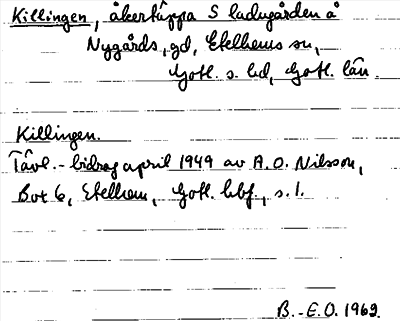 Killingen, åkertäppa S ladugården å
Nygårds, gd, Etelhems sn,
Gotl. s. hd, Gotl. län
Killingen.
Tävl.-bidrag april 1949 av A. O. Nilsson,
Box 6, Etelhem, Gotl. hbf., s. 1.
B.-E.O. 1969.